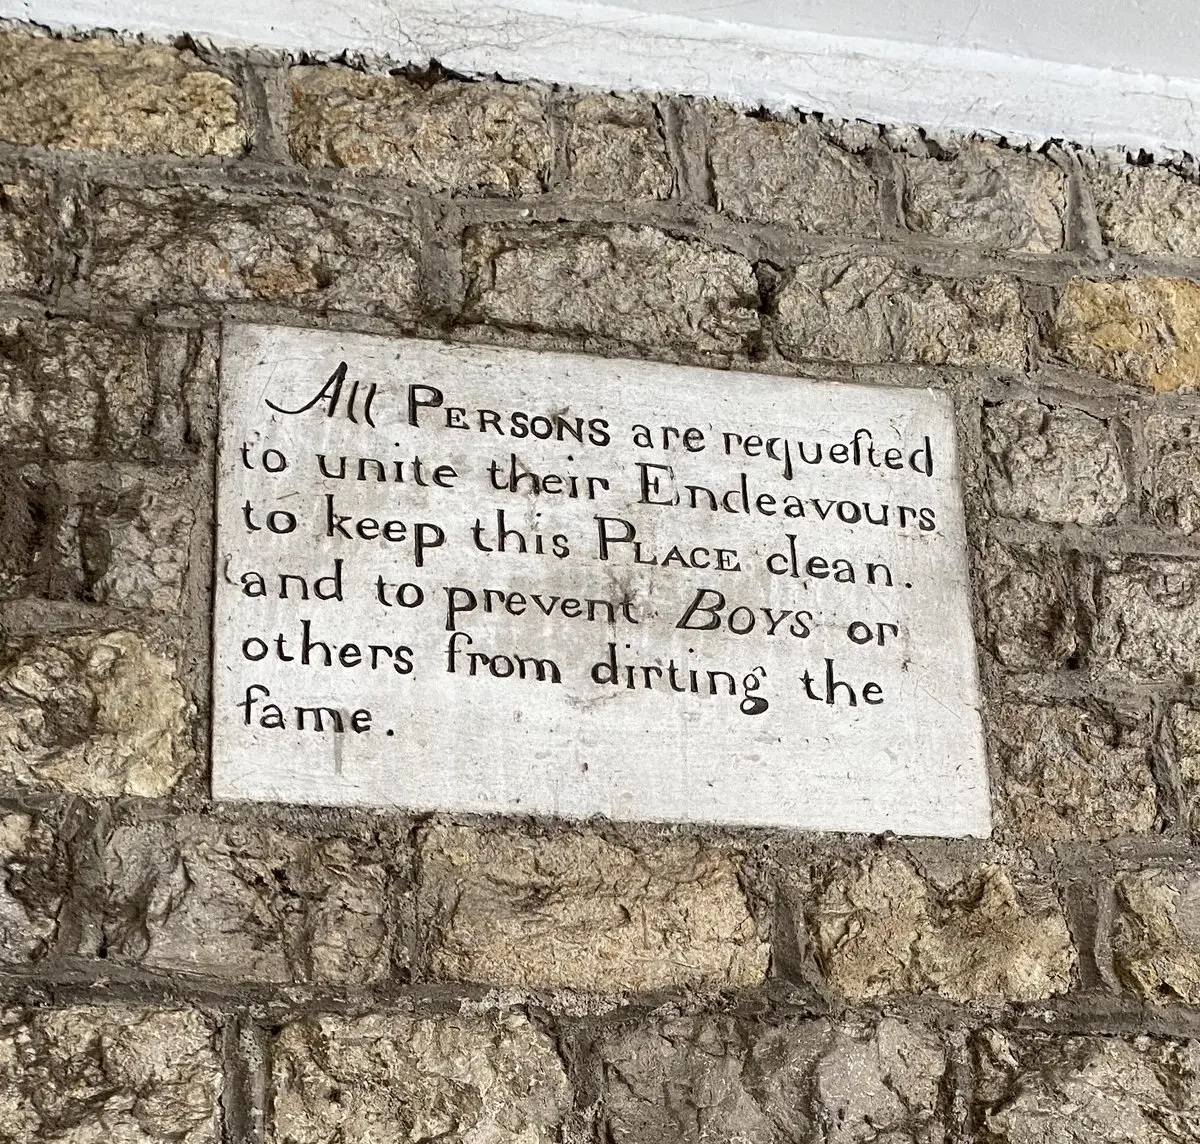 All PERSONS are requeſted
to unite their Endeavours
to keep this PLACE clean.
and to prevent BOYS or
others from dirting the
ſame.